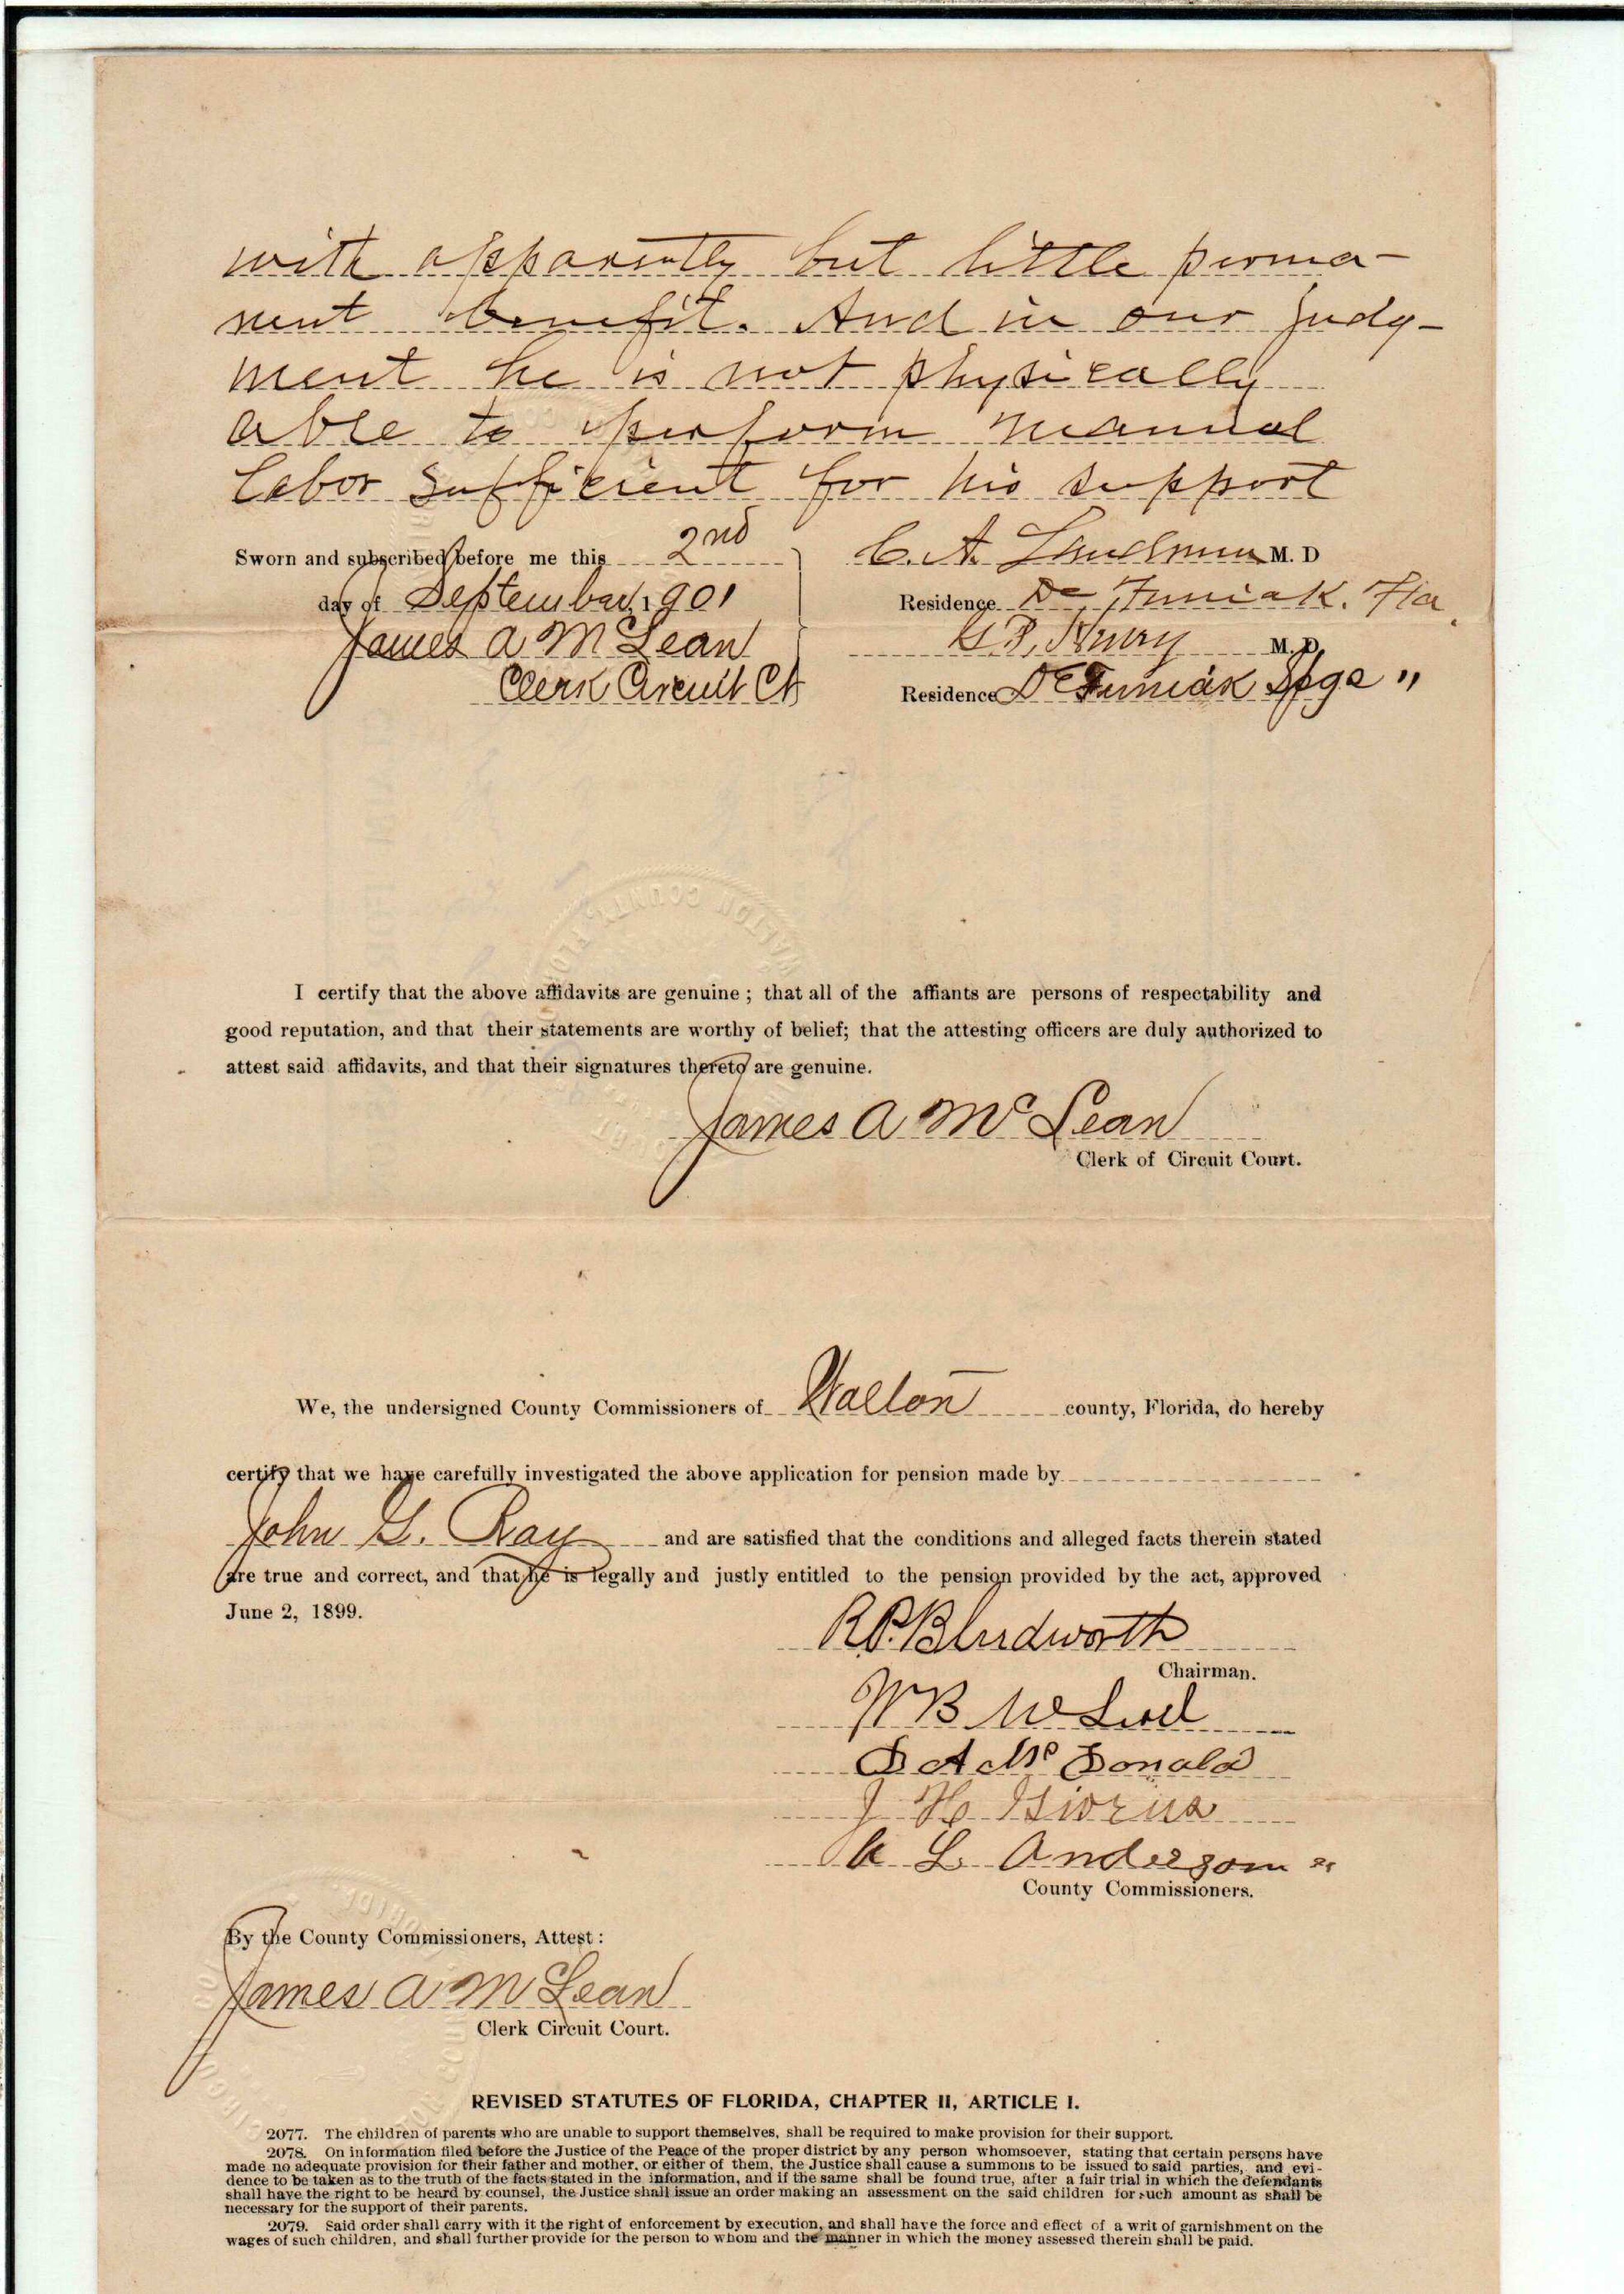 with apparently but little perma-
nent benefit. And in our judg-
ment he is not physically
able to perform manual
labor sufficient for his support
Sworn and subscribed before me this 2nd
day of September, 1901
James A McLean
Clerk Circuit Ct
C. A. Landrum M. D
Residence De Funiak. Fla.
G. P. Henry M. D.
Residence De Funiak Spgs "
I certify that the above affidavits are genuine; that all of the affiants are persons of respectability and
good reputation, and that their statements are worthy of belief; that the attesting officers are duly authorized to
attest said affidavits, and that their signatures thereto are genuine.
James A McLean
Clerk of Circuit Court.
We, the undersigned County Commissioners of Walton county, Florida, do hereby
certify that we have carefully investigated the above application for pension made by
John G. Ray and are satisfied that the conditions and alleged facts therein stated
are true and correct, and that he is legally and justly entitled to the pension provided by the act, approved
June 2, 1899.
R.P. Bludworth
Chairman.
W B McLeod
D A McDonald
J H
L. Anderson
County Commissioners.
By the County Commissioners, Attest:
James A McLean
Clerk Circuit Court.
REVISED STATUTES OF FLORIDA, CHAPTER II, ARTICLE I.
2077. The children of parents who are unable to support themselves, shall be required to make provision for their support.
2078. On information filed before the Justice of the Peace of the proper district by any person whomsoever, stating that certain persons have
made no adequate provision for their father and mother, or either of them, the Justice shall cause a summons to be issued to said parties, and evi-
dence to be taken as to the truth of the facts stated in the information, and if the same shall be found true, after a fair trial in which the defendants
shall have the right to be heard by counsel, the Justice shall issue an order making an assessment on the said children for such amount as shall be
necessary for the support of their parents.
2079. Said order shall carry with it the right of enforcement by execution, and shall have the force and effect of a writ of garnishment on the
wages of such children, and shall further provide for the person to whom and the manner in which the money assessed therein shall be paid.